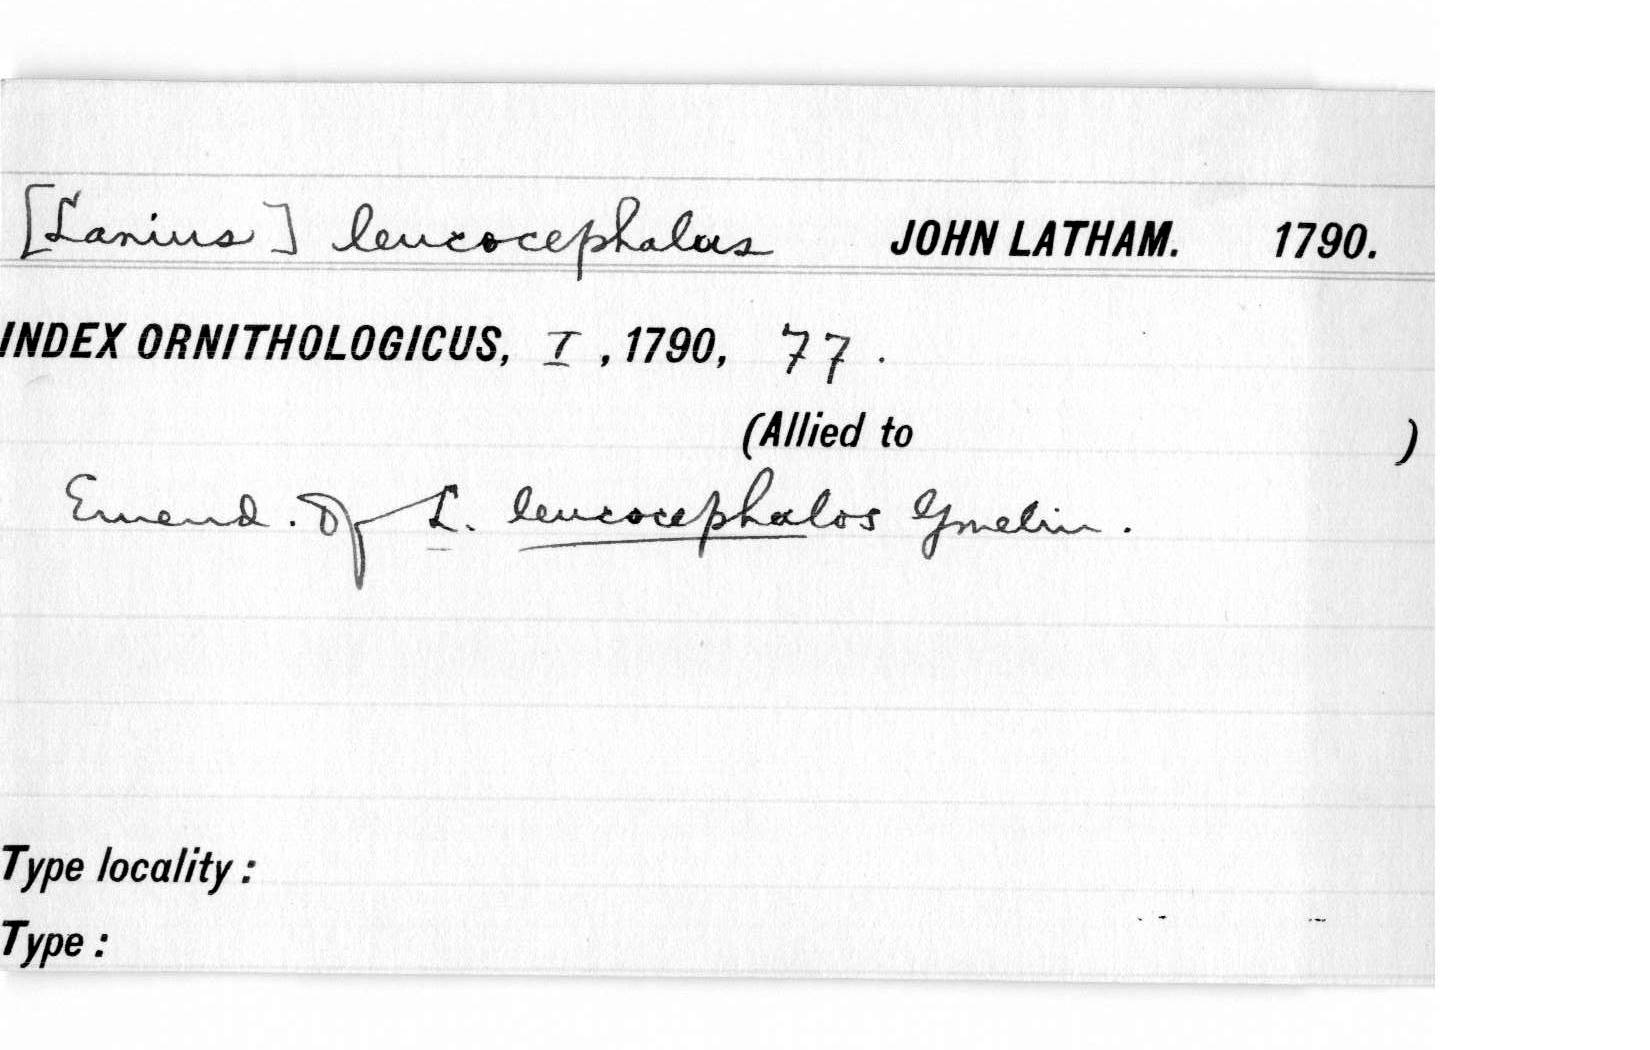 [Lanius] leucocephalus JOHN LATHAM. 1790.
INDEX ORNITHOLOGICUS, I, 1790, 77.
(Allied to )
Emend. of L. leucocephalos Gmelin.
Type locality :
Type :